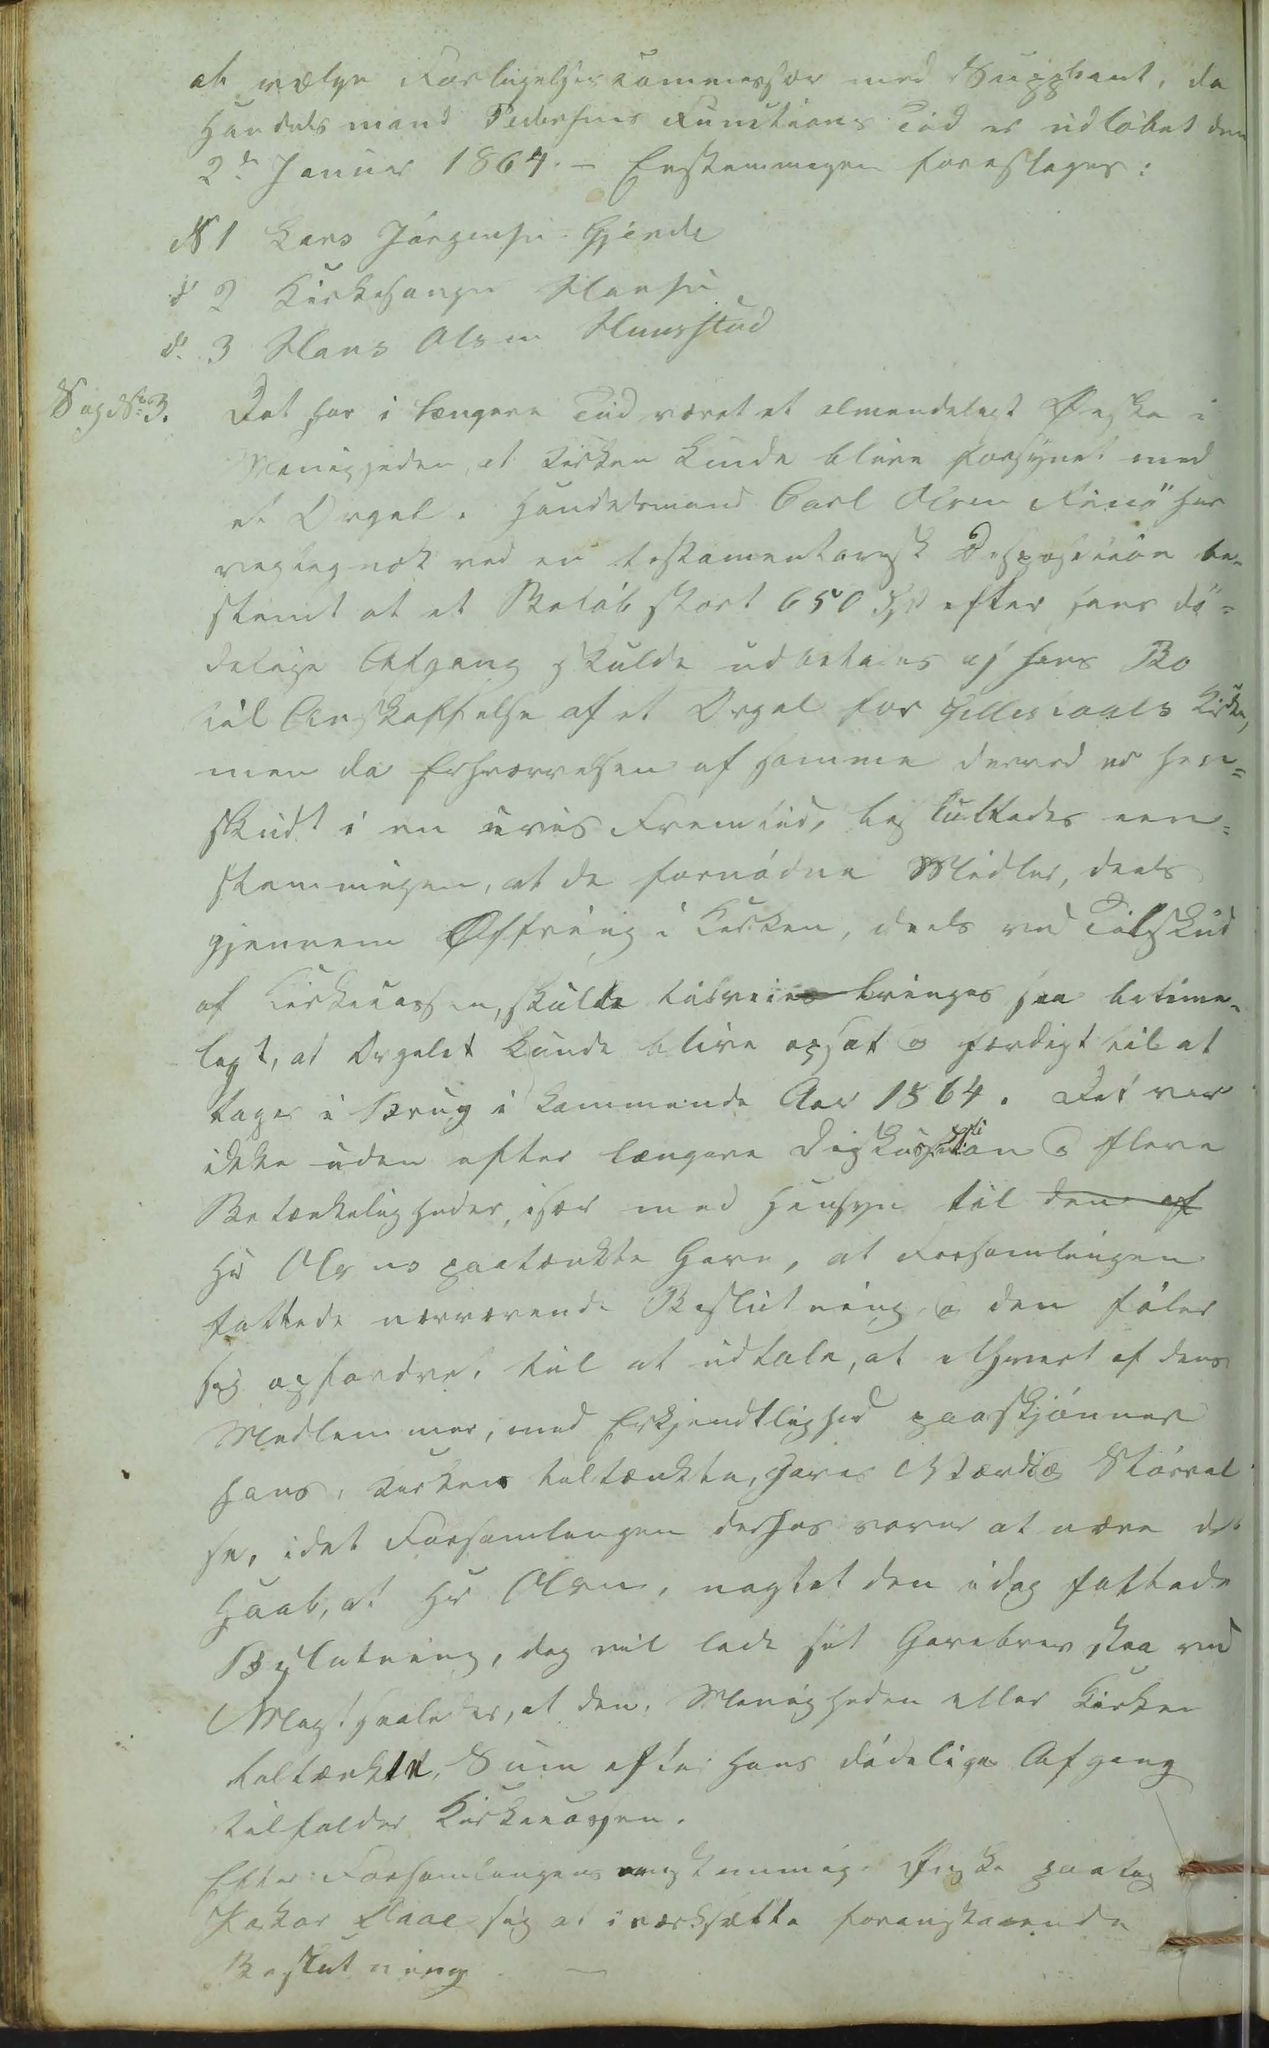 at vælge Forligelseskommissær med Suppleant, da
Handelsmand Pedersens Functions Tid er udløbet den
2de Januar 1864. – Enstemmigen foreslages:
N 1 Lars Jørgensen Gjerde
d 2 Kirkesanger Hansen
d. 3 Hans Olsen Hunstad
Sag No 3. Det har i længere Tiid været et almindeligt Ønske i
Menigheden, at Kirken kunde blive forsynet med
et Orgel. Handelsmand Carl Olsen har
vistnok ved en testamentarisk Disposition be-
stemt at et Beløb stort 650 Spd efter hans dø-
delige Afgang skulde udbetales af hans Bo
til Anskaffelse af et Orgel for Gilleskaals Kirke,
men da Erhvervelsen af samme derved er hen-
skudt i en uvis Fremtid, besluttedes een-
stemmigen, at de fornødne Midler, deels
gjennem Offring i Kirken, deels ved Tilskud
af Kirkecassen, skulde tilveiebringes saa betime-
ligt, at Orgelet kunde blive opsat o færdigt til at
tages i Brug i kommende Aar 1864. Det var
ikke uden efter længere Diskussion o flere
Betænkeligheder, især med Hensyn til den af
Hr Olsens paatænkte Gave, at Forsamlingen
fattede nærværende Beslutning, o den føler
sig opfordret til at udtale, at ethvert af dens
Medlemmer, med Erkjendtlighed paaskjønner
hans, Kirken tiltænkte, Gaves Værdi o Størrel
se, idet Forsamlingen derhos vover at nære det
Haab, at Hr Olsen, uagtet den idag fattede
Beslutning, dog vil lade sit Gavebrev staa ved
Magt saaledes, at den, Menigheden eller Kirken
tiltænkte, Sum efter hans dødelige Afgang
tilfalder Kirkecassen.
Efter Forsamlingens eenstemmige Ønske paatog
Pastor sig at iværksætte foranstaaende
Beslutning. —